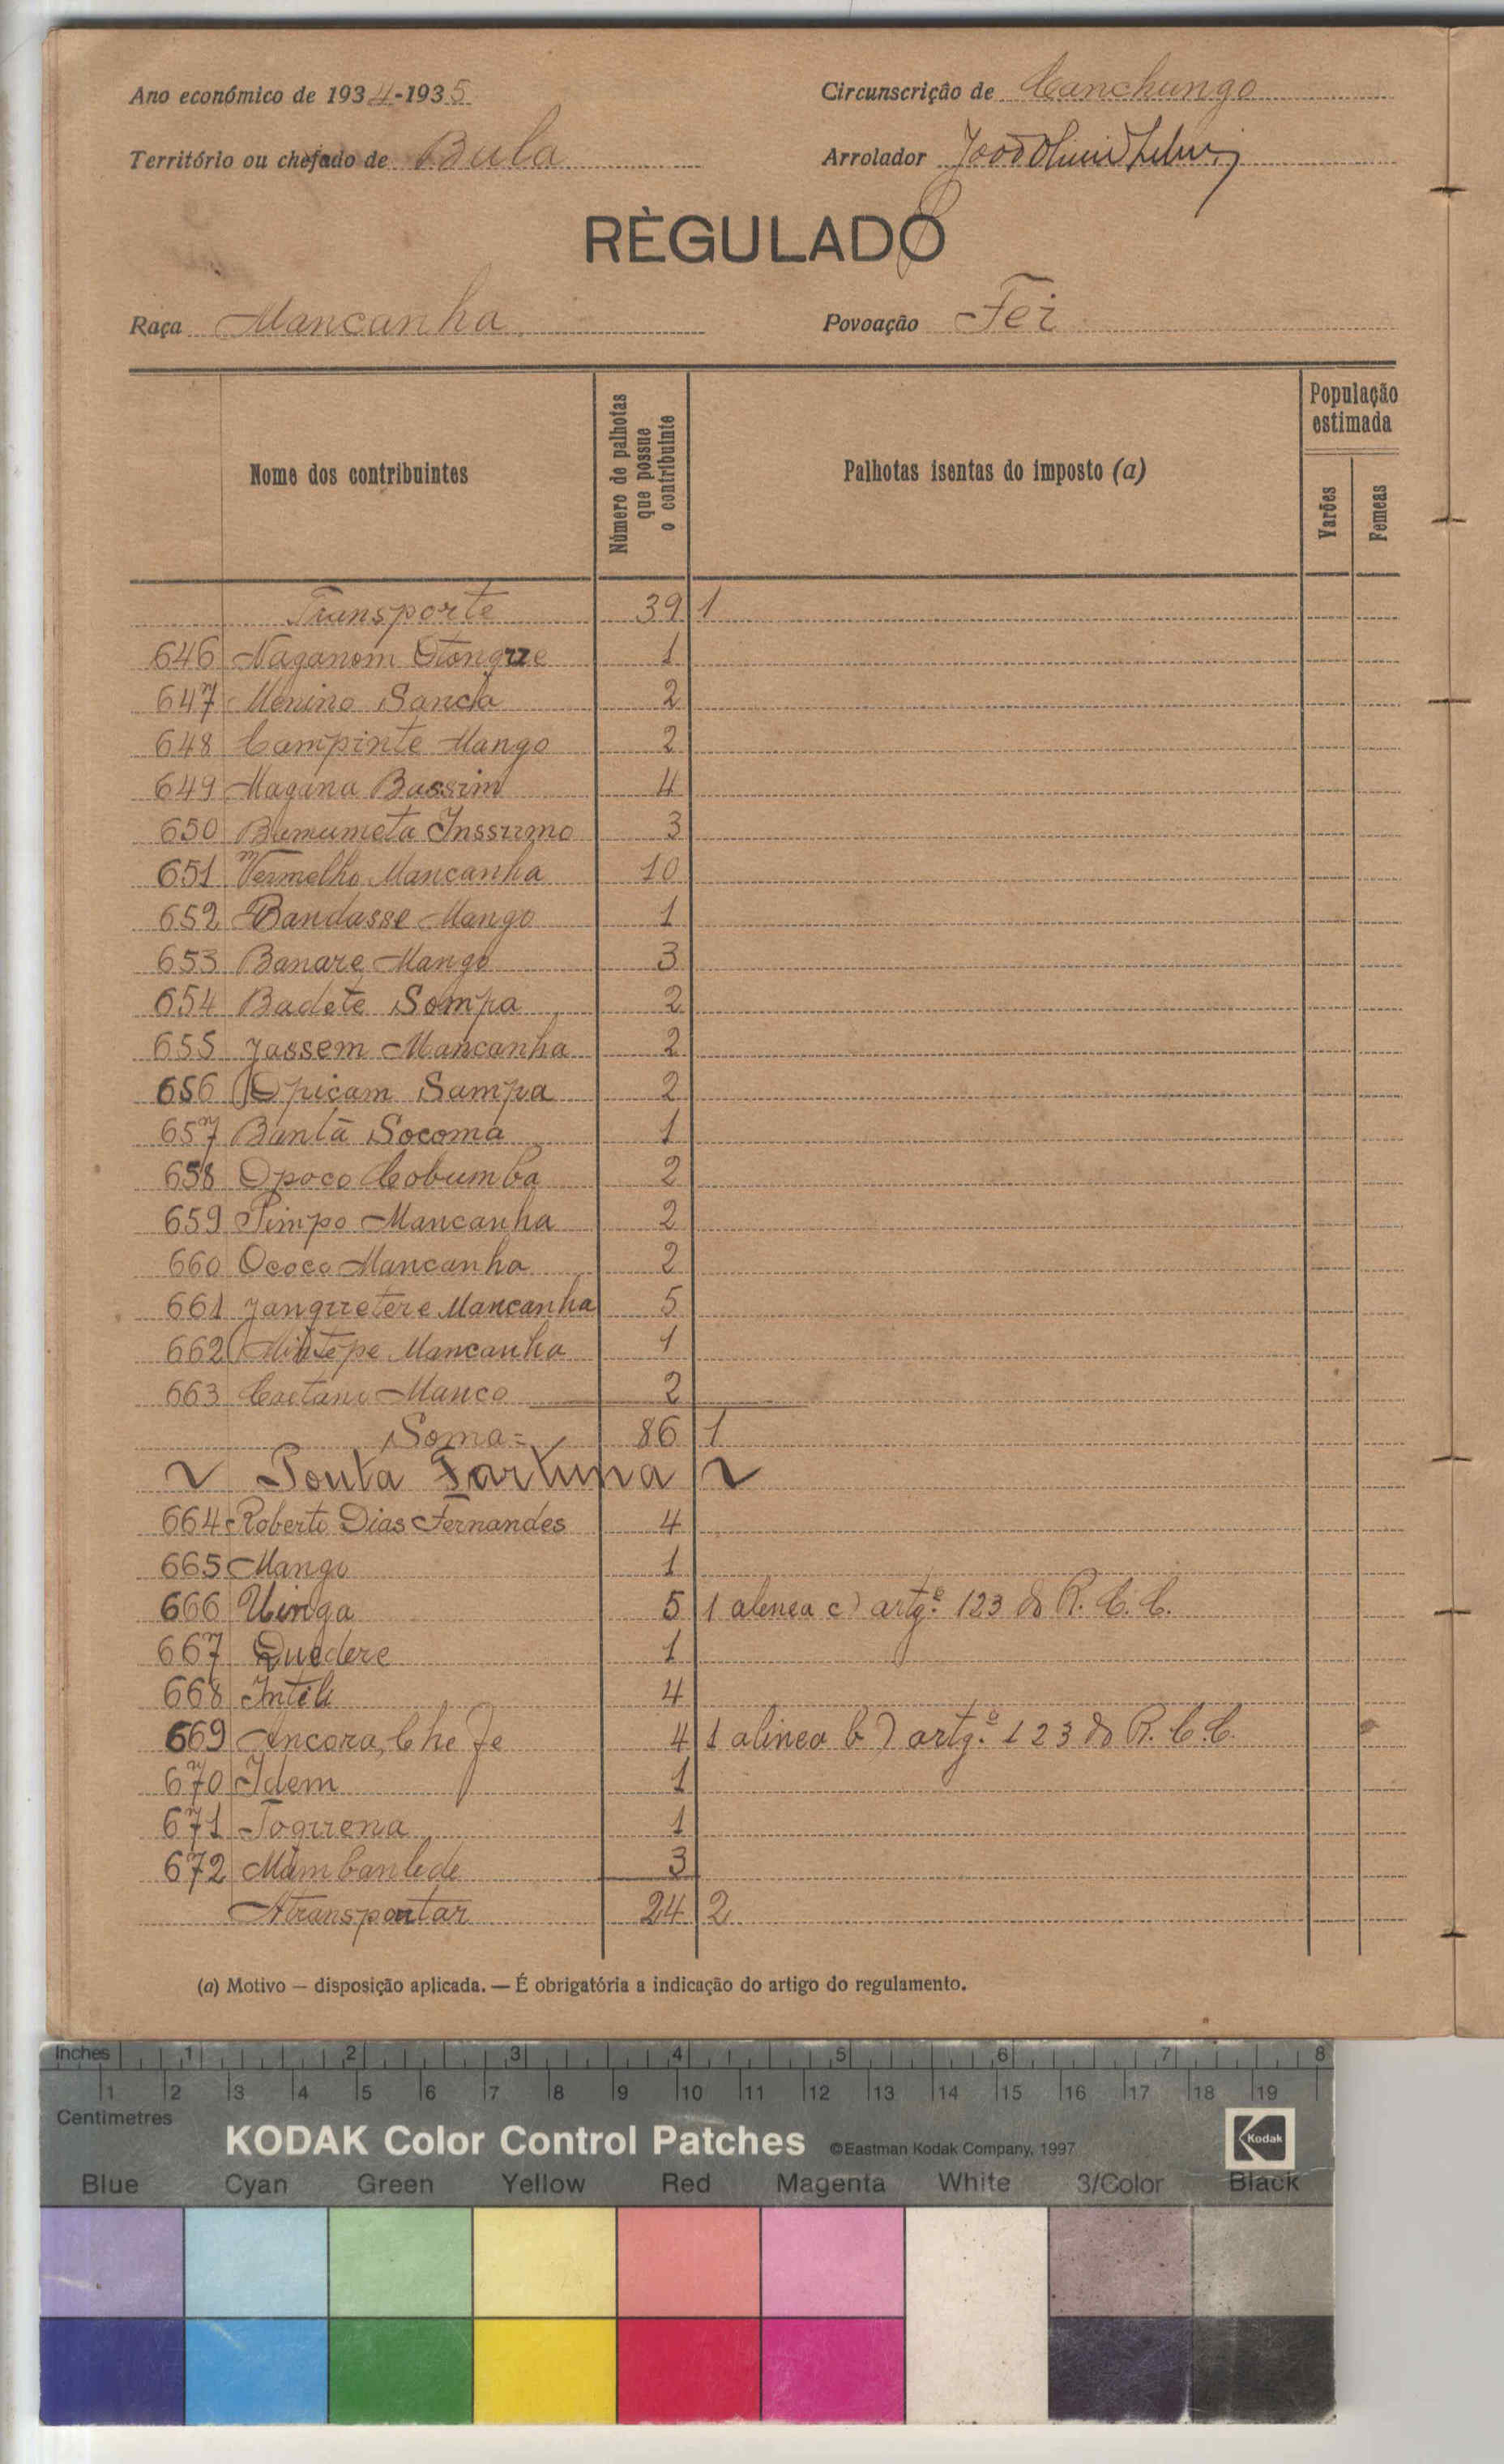 Ano económico de 1934-1935
Circunscrição de Canchungo
Território ou chefado de Bula
Arrolador
RÈGULADO
Raça Mancanha
Povoação Fei
Nome dos contribuintes
Número de palhotas que possue o contribuinte
Palhotas isentas do imposto (a)
População estimada
Varões
Femeas
Transporte 39 1
646 Naganom Otongue 1
647 Menino Sancla 2
648 Campinte Mango 2
649 Magina Bassim 4
650 Bamumeta Inssumo 3
651 Vermelho Mancanha 10
652 Bandasse Mango 1
653 Banare Mango 3
654 Badete Sompa 2
655 Jassem Mancanha 2
656 Opicam Sampa 2
657 Bantã Socoma 1
658 Opoco Cobumba 2
659 Pimpo Mancanha 2
660 Ococo Mancanha 2
661 Janquetere Mancanha 5
662 Mancanha 1
663 Caetano Manco 2
Soma= 86 1
Ponta Fortuna
664 Roberto Dias Fernandes 4
665 Mango 1
666 Uinga 5 1 alenea c) artgº. 123 do R. C. C.
667 Quedere 1
668 Inteli 4
669 Ancora, Chefe 4 1 alinea b) artgº. 123 do R. C. C.
670 Idem 1
671 Toquena 1
672 3
Atransportar 24 2
(a) Motivo — disposição aplicada. — É obrigatória a indicação do artigo do regulamento.
Inches 1 2 3 4 5 6 7 8
1 2 3 4 5 6 7 8 9 10 11 12 13 14 15 16 17 18 19
Centimetres
KODAK Color Control Patches ©Eastman Kodak Company, 1997 Kodak
Blue Cyan Green Yellow Red Magenta White 3/Color Black